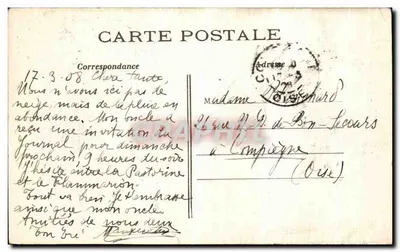 CARTE POSTALE
Correspondance
Adresse
17-3-08 Chère tante
Nous n'avons ici pas de
neige, mais de la pluie en
abondance. Mon oncle a
reçu une invitation du
Journal pour dimanche
prochain, 9 heures du soir
J'hésite entre la Pastorine
et le Flammarion.
Tout va bien Je t'embrasse
ainsi que mon oncle
Amitiés de nous deux
Ton
Madame
Rue N. D. de Bon-Secours
à Compiègne
(Oise)
OISE